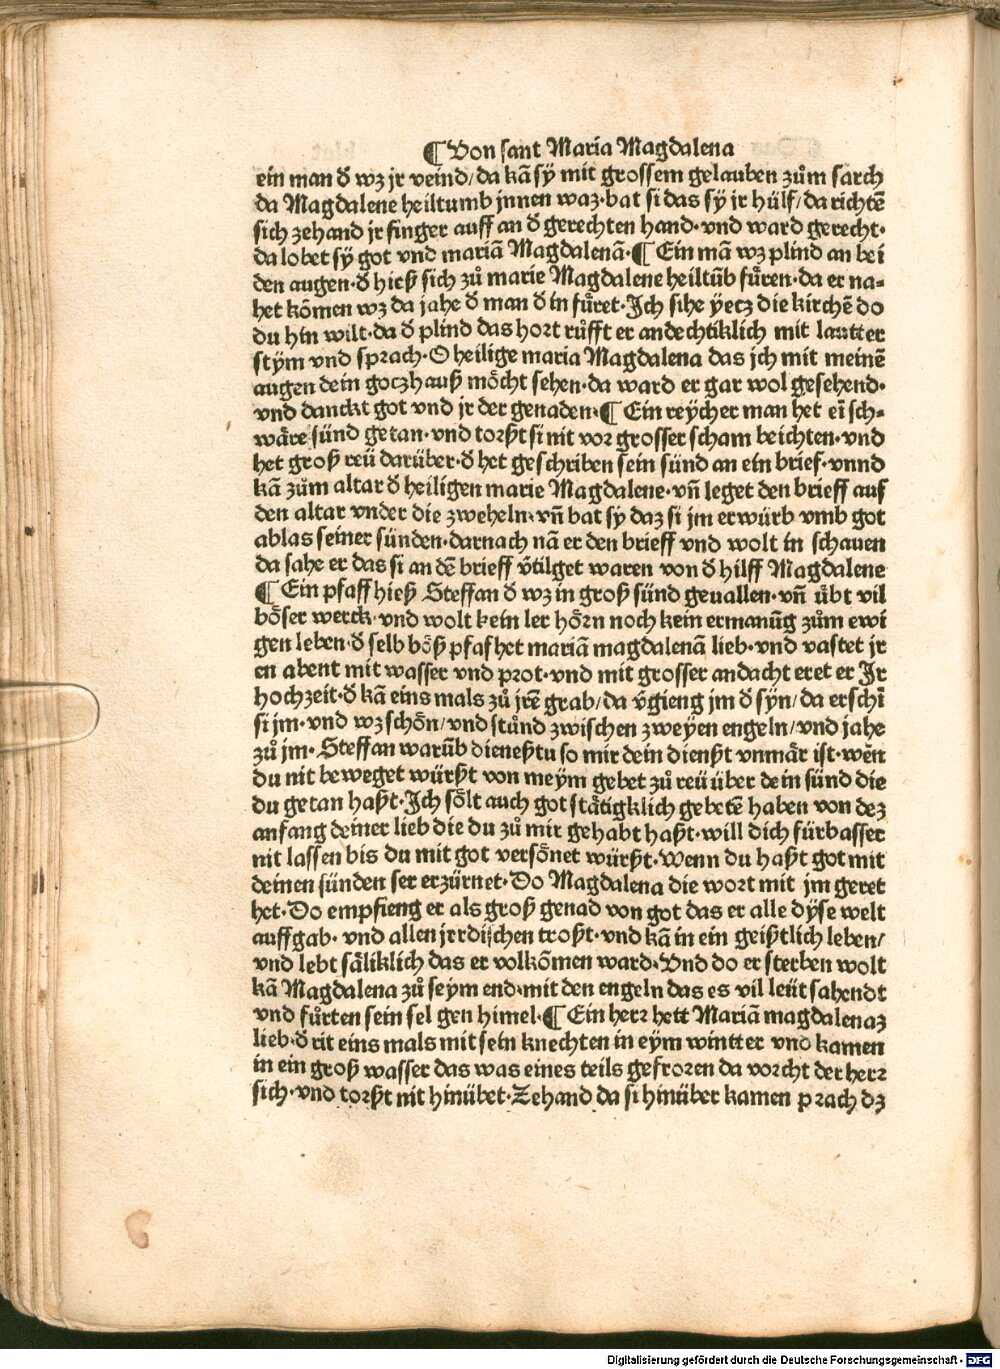 ¶ Von sant Maria Magdalena
ein man ð wz jr veind/da kã sÿ mit grossem gelauben zům sarch
da Magdalene heiltumb jnnen waz·bat si das sÿ jr hülf/da richtẽ
sich zehand jr finger auff an ð gerechten hand·vnd ward gerecht·
da lobet sÿ got vnd mariã Magdalenã·¶ Ein mã wz plind an bei
den augen·ð hieß sich zů marie Magdalene heiltũb fůren·da er na-
het kõmen wz da jahe ð man ð in fůret·Jch sihe ÿetz die kirchẽ do
du hin wilt·da ð plind das hort růfft er andechtiklich mit lautter
stÿm vnd sprach·O heilige maria Magdalena das jch mit meinẽ
augen dein goczhauß möcht sehen·da ward er gar wol gesehend·
vnd danckt got vnd jr der genaden·¶ Ein reÿcher man het eĩ sch-
wäre sünd getan·vnd torßt si nit vor grosser scham beichten·vnd
het groß reü darüber·ð het geschriben sein sünd an ein brief·vnnd
kã zům altar ð heiligen marie Magdalene·vñ leget den brieff auf
den altar vnder die zweheln·vñ bat sÿ daz si jm erwürb vmb got
ablas seiner sünden·darnach nã er den brieff vnd wolt in schauen
da sahe er das si an dẽ brieff v̄tilget waren von ð hilff Magdalene
¶ Ein pfaff hieß Steffan ð wz in groß sünd geuallen·vñ übt vil
böser werck·vnd wolt kein ler hörn noch kein ermanũg zům ewi
gen leben·ð selb böß pfaf het mariã magdalenã lieb·vnd vastet jr
en abent mit wasser vnd prot·vnd mit grosser andacht eret er Jr
hochzeit·ð kã eins mals zů jrẽ grab/da v̄gieng jm ð sÿn/da erschĩ
si jm·vnd wz schön/vnd stůnd zwischen zweÿen engeln/vnd jahe
zů jm·Steffan warũb dieneßtu so mir dein dienßt vnmär ist·wẽn
du nit beweget würßt von meÿm gebet zů reü über dein sünd die
du getan haßt·Jch sölt auch got stätigklich gebetẽ haben von dez
anfang deiner lieb die du zů mir gehabt haßt·will dich fürbasser
nit lassen bis du mit got versönet würßt·Wenn du haßt got mit
deinen sünden ser erzürnet·Do Magdalena die wort mit jm geret
het·Do empfieng er als groß genad von got das er alle dÿse welt
auffgab·vnd allen jrrdischen troßt·vnd kã in ein geißtlich leben/
vnd lebt säliklich das er volkõmen ward·Vnd do er sterben wolt
kã Magdalena zů seÿm end·mit den engeln das es vil leüt sahendt
vnd fůrten sein sel gen himel·¶ Ein herr hett Mariã magdalenaz
lieb·ð rit eins mals mit sein knechten in eÿm wintter vnd kamen
in ein groß wasser das was eines teils gefroren da vorcht der herr
sich·vnd torßt nit hinübet·Zehand da si hinüber kamen prach dz
Digitalisierung gefördert durch die Deutsche Forschungsgemeinschaft - DFG